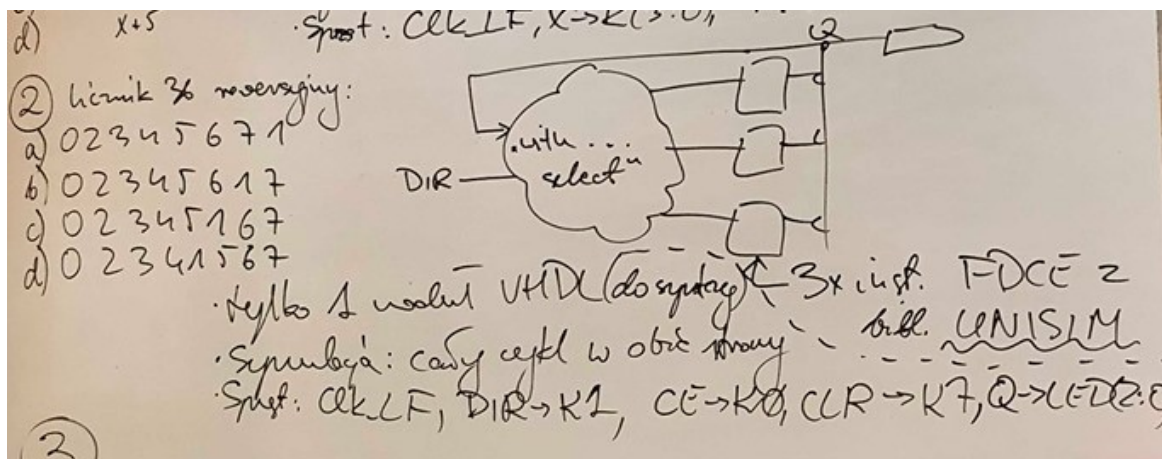 d) x+5 · Sprzęt: Clk_LF, X→K(3:0),
Q
② Licznik 3b rewersyjny:
a) 0 2 3 4 5 6 7 1
b) 0 2 3 4 5 6 1 7
c) 0 2 3 4 5 1 6 7
d) 0 2 3 4 1 5 6 7
„with ...
select"
DIR
· tylko 1 moduł VHDL (do syntezy) 3x inst. FDCE z
bibl. UNISIM
· Symulacja: cały cykl w obie strony
· Sprzęt: Clk_LF, DIR→K1, CE→K0, CLR→K7, Q→LED(2:0
③